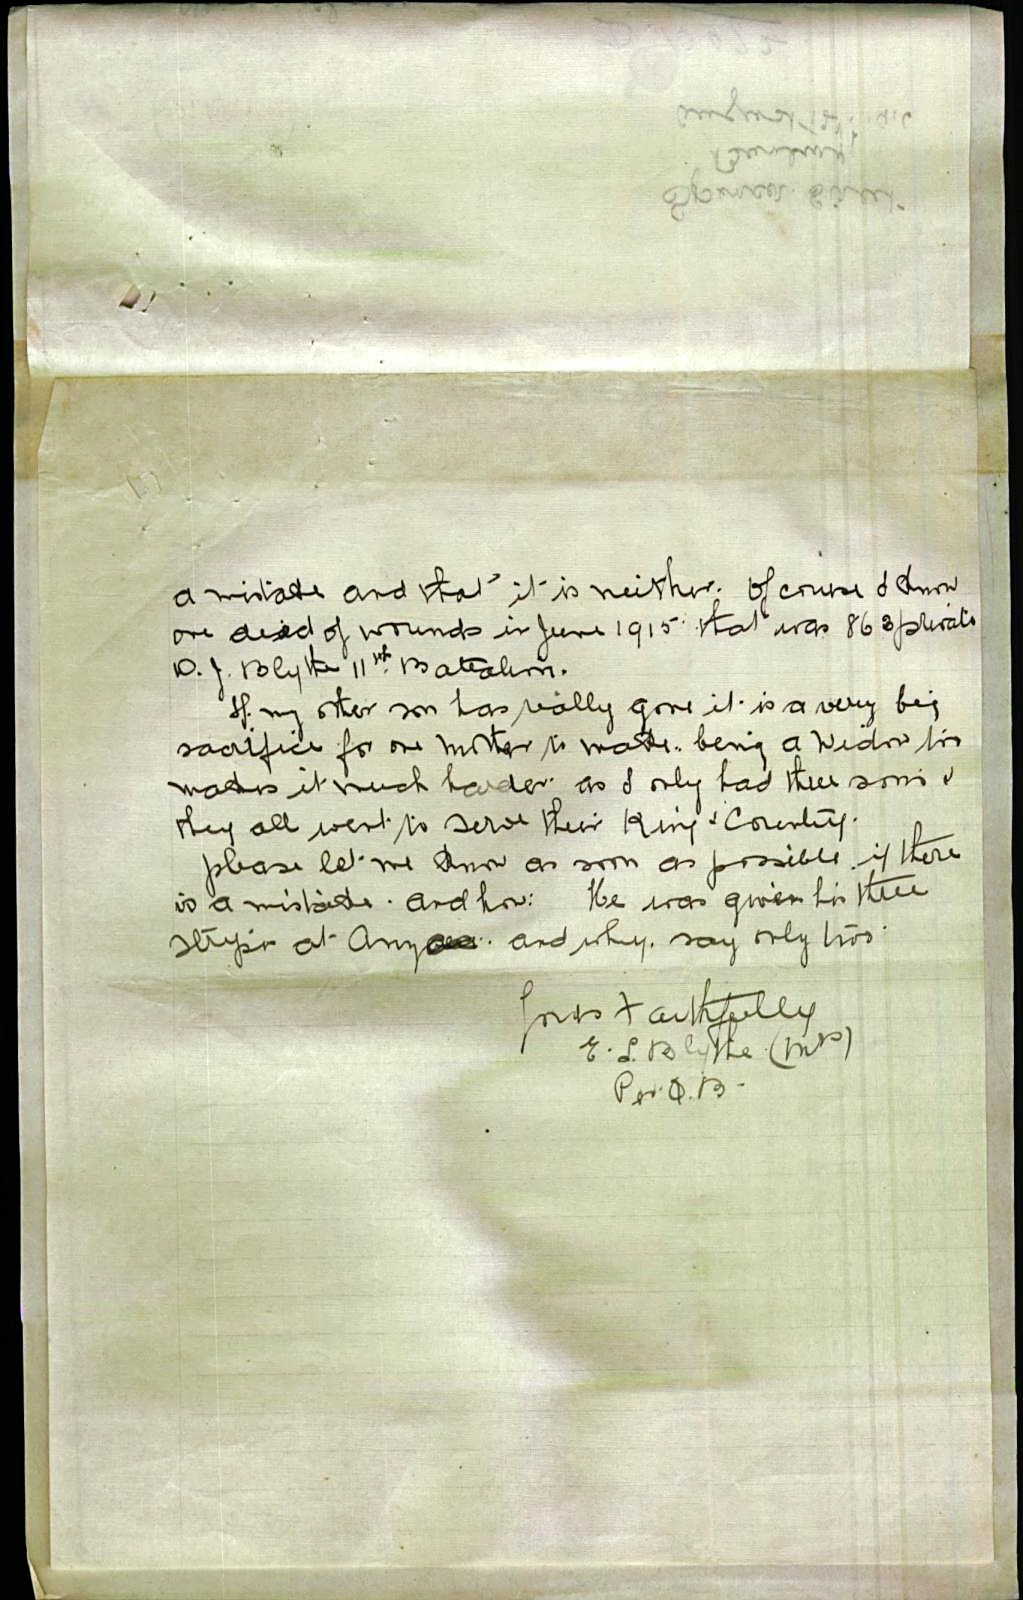 a mistake and that it is neither. Of course I know
one died of wounds in June 1915. that was 863 private
D. J. Blythe 11th Battalion.
If my other son has really gone it is a very big
sacrifice for one mother to make. being a Widow too
makes it much harder as I only had three sons &
they all went to serve their King & Country.
please let me know as soon as possible if there
is a mistake. and how: He was given his three
strips at Anzac. and why. say only two.
Yours Faithfully
E. L. Blythe (Mrs)
Per D.B.